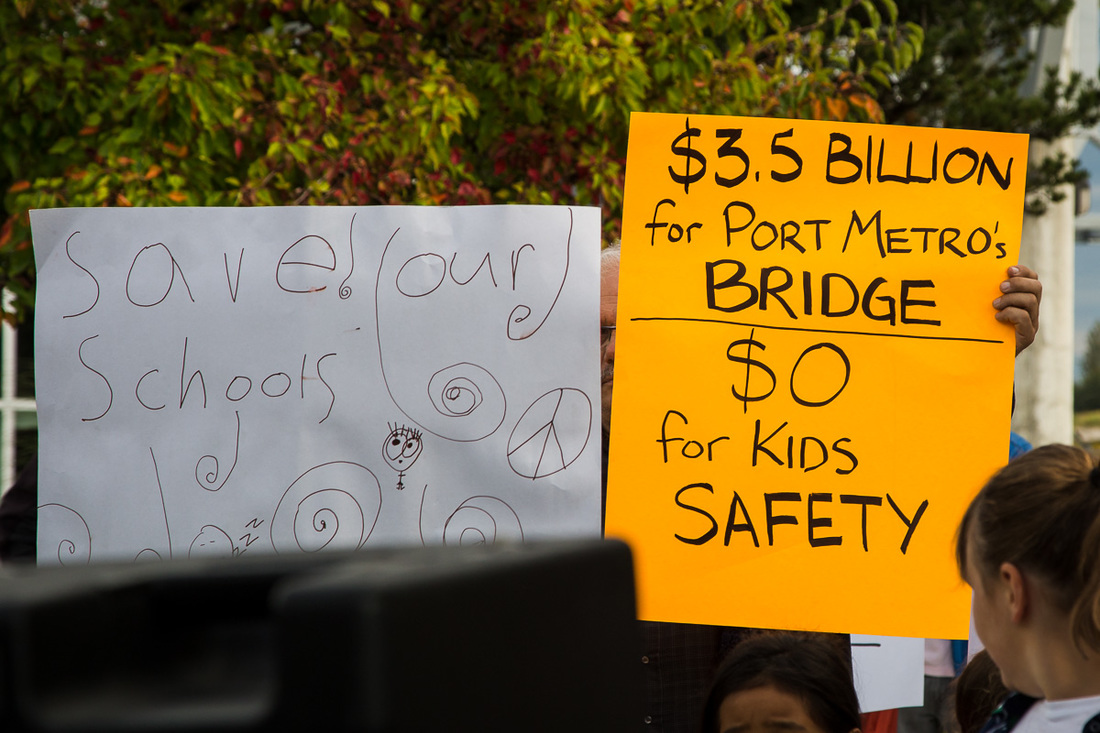 Save! (our)
Schools
zzz
$3.5 BILLION
for PORT METRO's
BRIDGE
$0
for KIDS
SAFETY